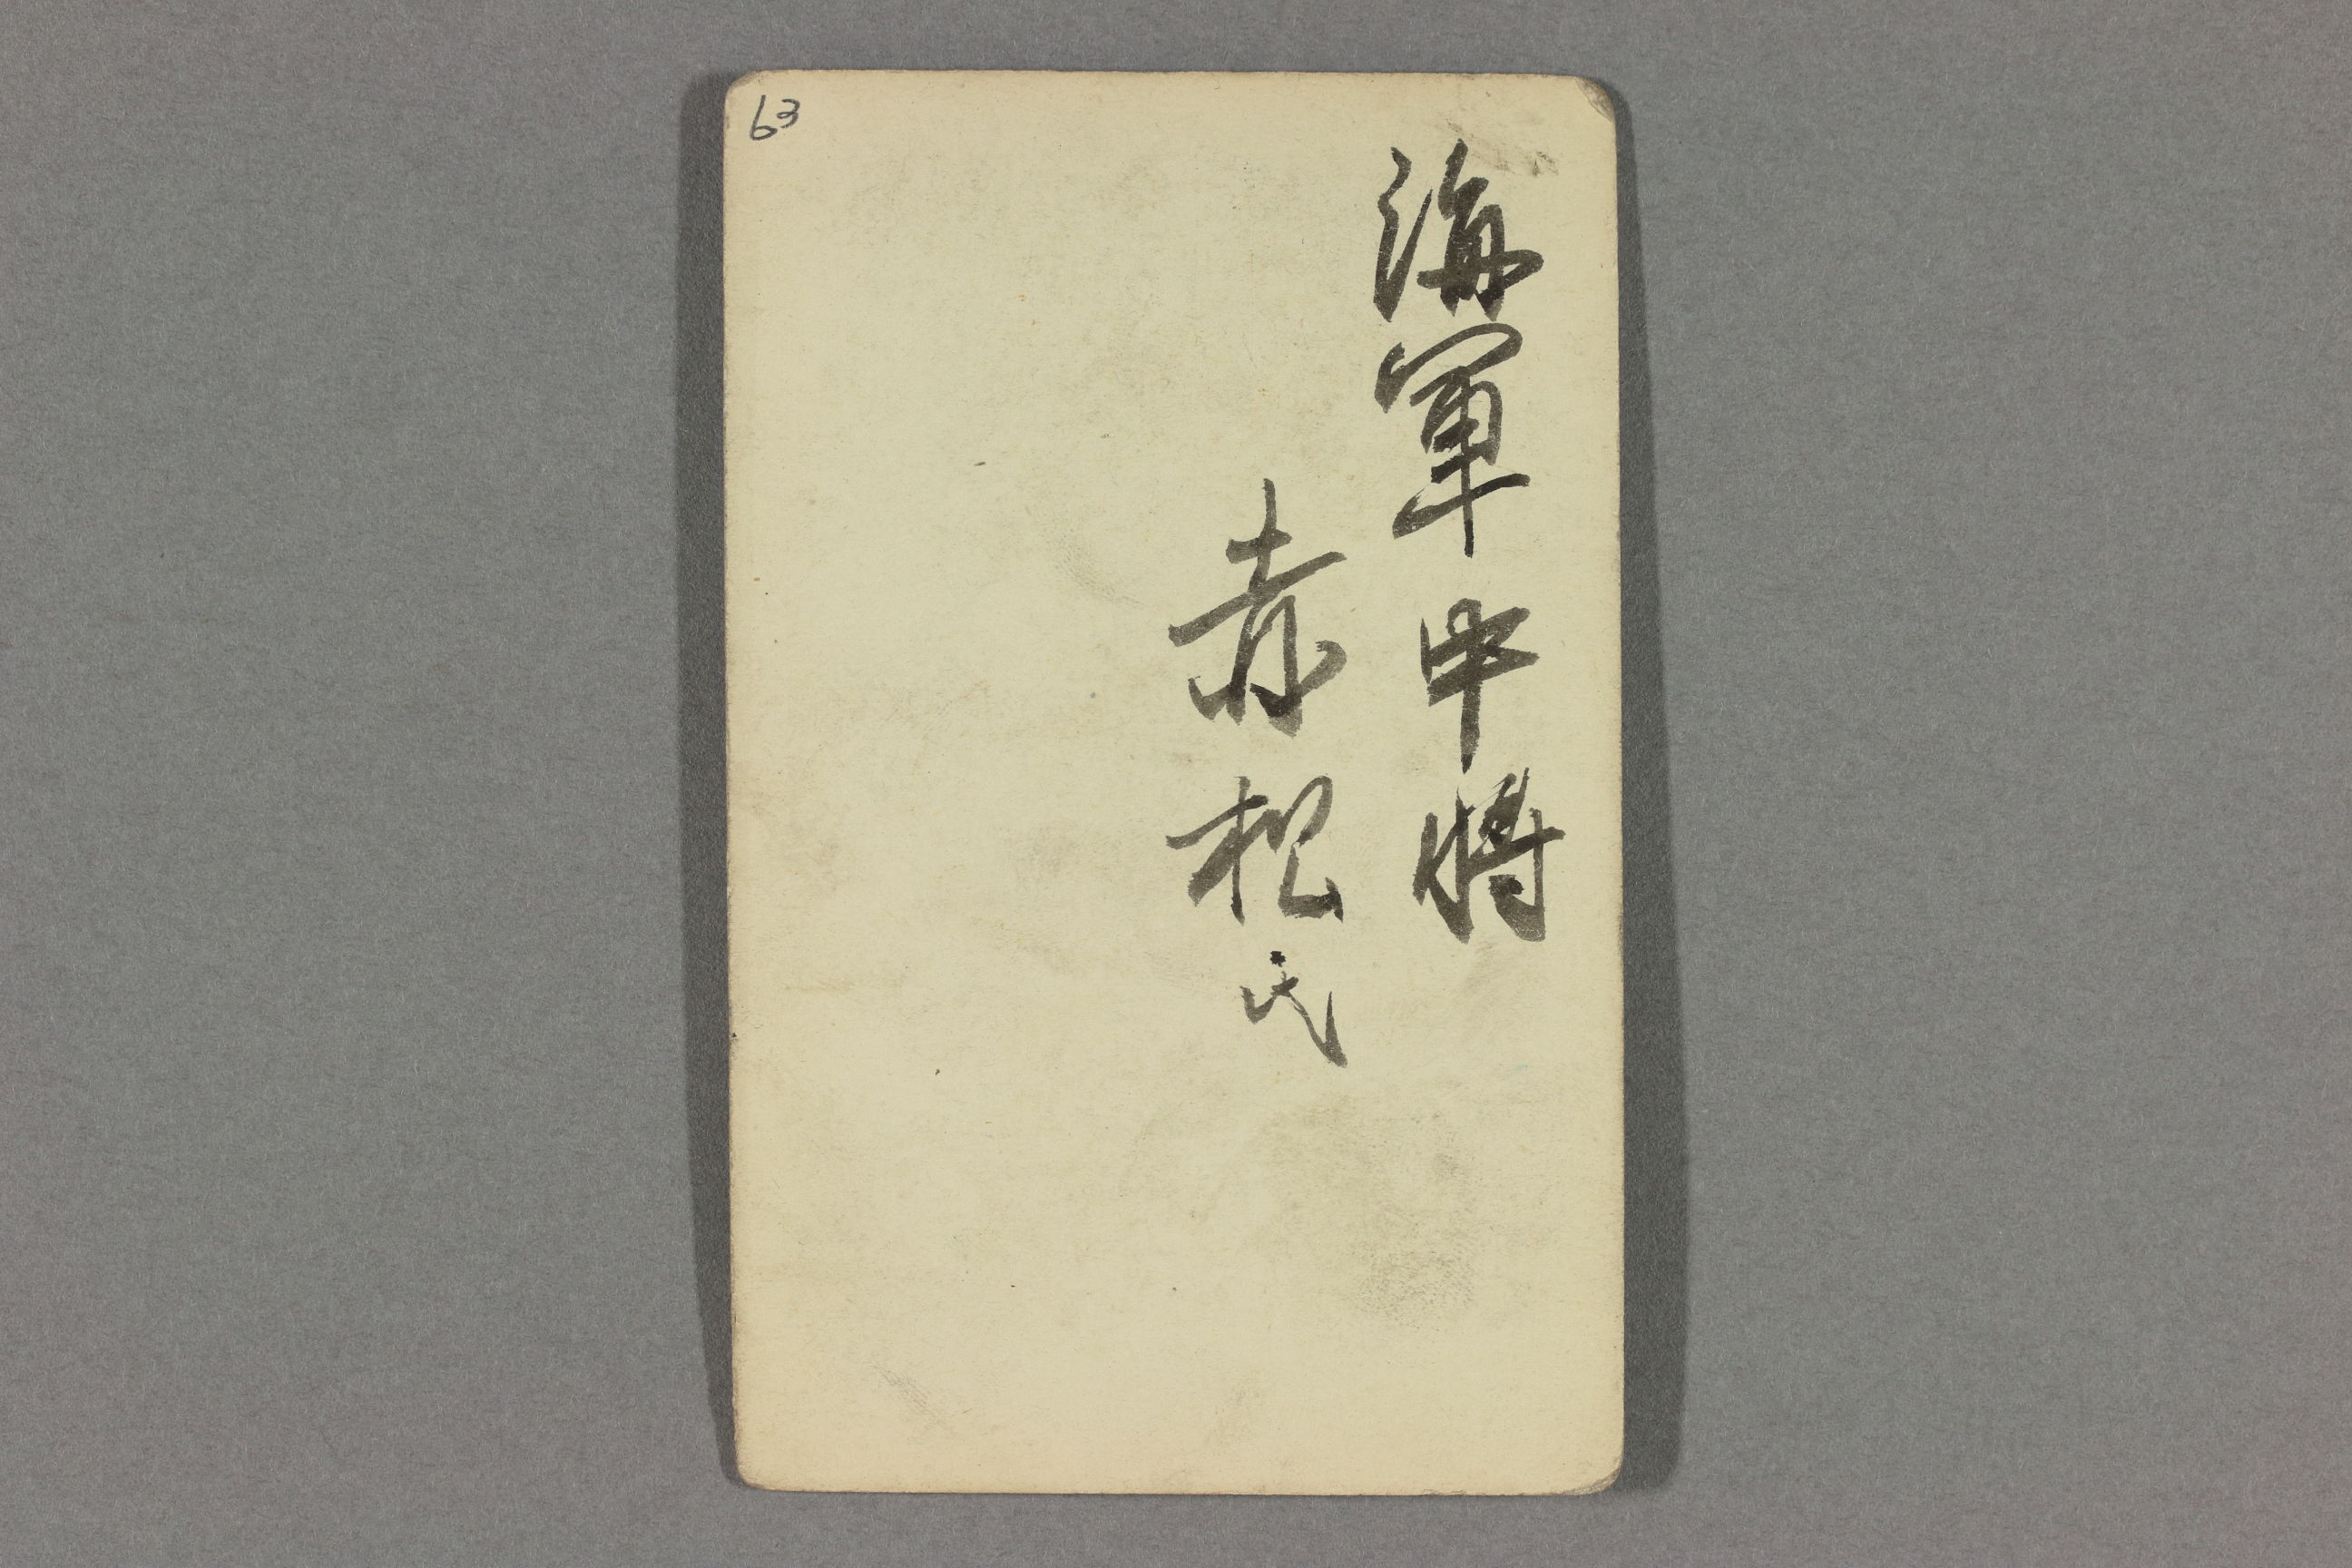 63
海軍中將
赤松氏